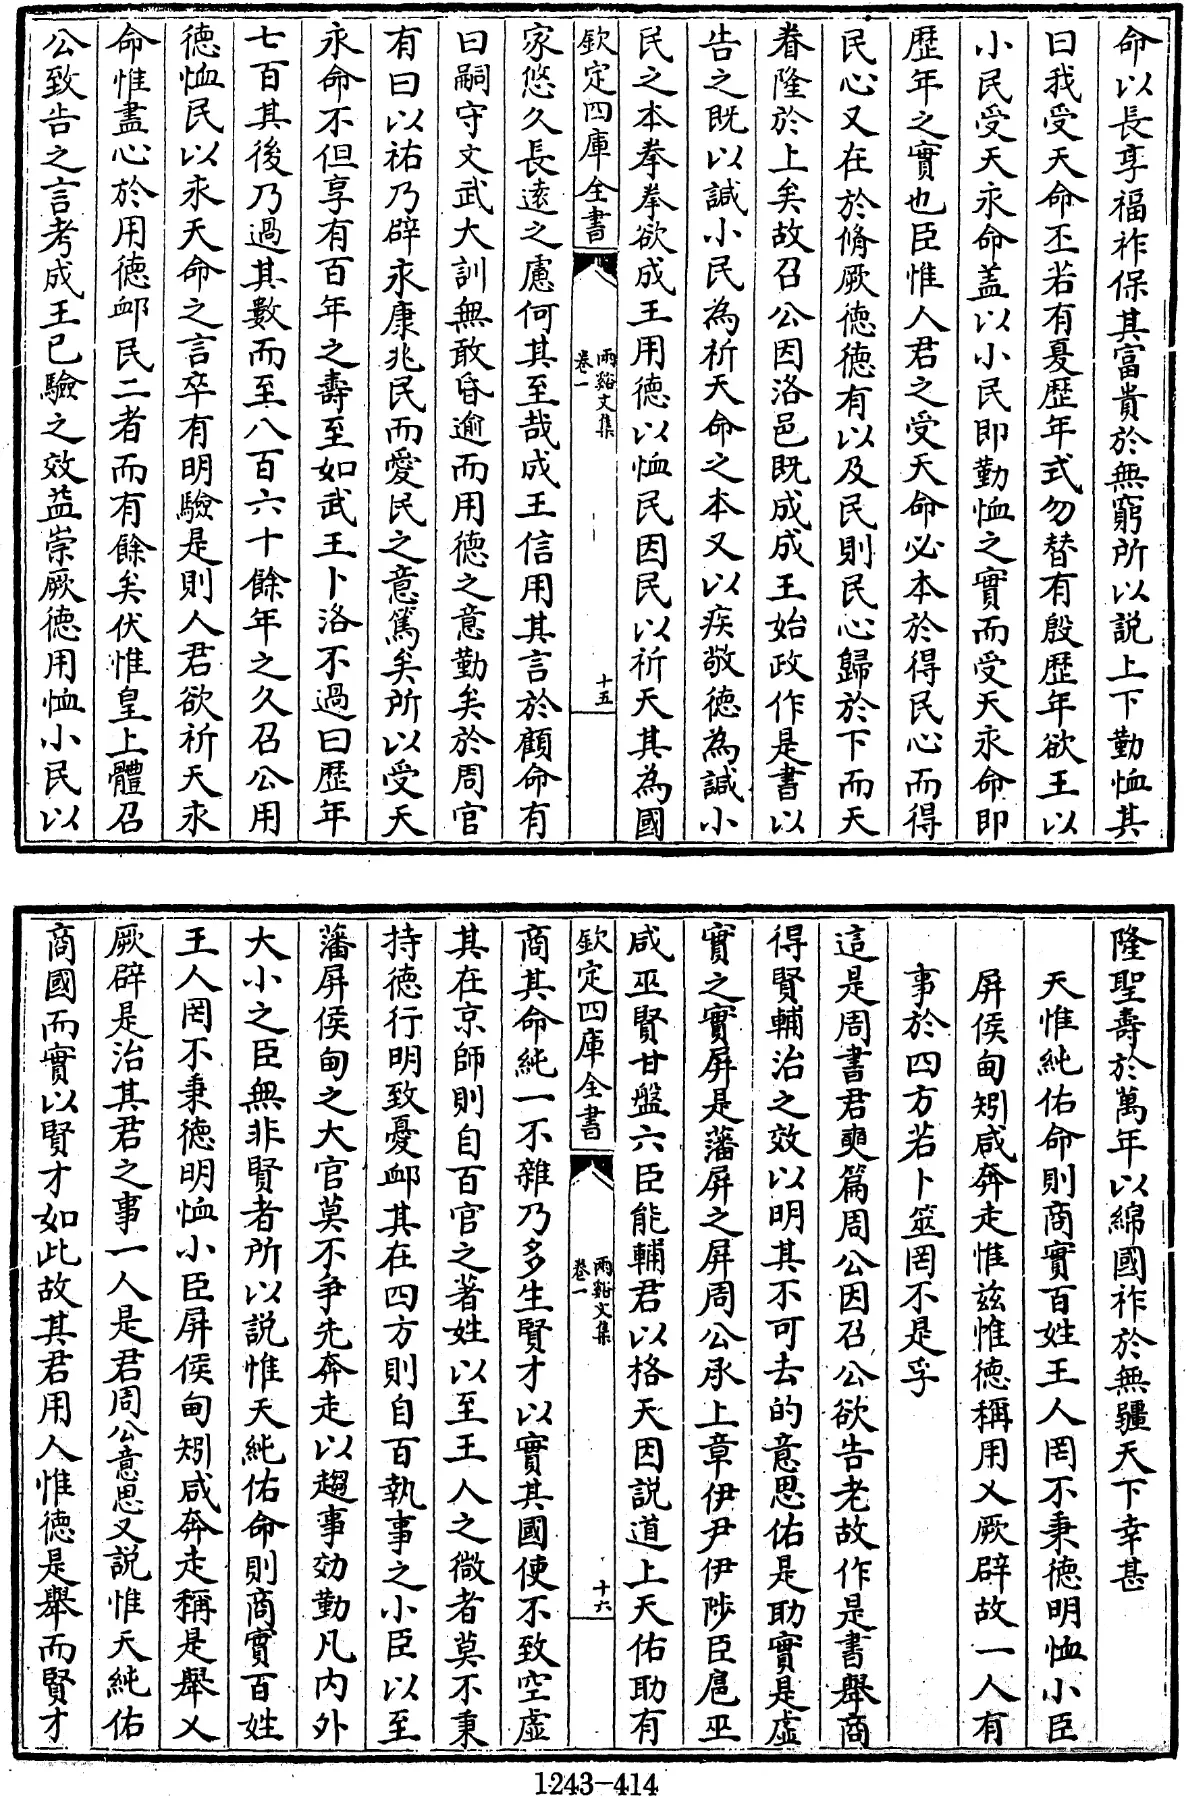 命以長享福祚保其富貴於無窮所以説上下勤恤其
曰我受天命丕若有夏歴年式勿替有殷歴年欲王以
小民受天永命盖以小民即勤恤之實而受天永命即
歴年之實也臣惟人君之受天命必本於得民心而得
民心又在於脩厥徳徳有以及民則民心歸於下而天
眷隆於上矣故召公因洛邑既成成王始政作是書以
告之既以諴小民為祈天命之本又以疾敬徳為諴小
民之本拳拳欲成王用徳以恤民因民以祈天其為國
欽定四庫全書
雨谿文集
卷一
十五
家悠久長逺之慮何其至哉成王信用其言於顧命有
曰嗣守文武大訓無敢昏逾而用徳之意勤矣於周官
有曰以祐乃辟永康兆民而愛民之意篤矣所以受天
永命不但享有百年之壽至如武王卜洛不過曰歴年
七百其後乃過其數而至八百六十餘年之久召公用
徳恤民以永天命之言卒有明驗是則人君欲祈天永
命惟盡心於用徳卹民二者而有餘矣伏惟皇上體召
公致告之言考成王已驗之效益崇厥徳用恤小民以
隆聖壽於萬年以綿國祚於無疆天下幸甚
天惟純佑命則商實百姓王人罔不秉徳明恤小臣
屏侯甸矧咸奔走惟兹惟徳稱用乂厥辟故一人有
事於四方若卜筮罔不是孚
這是周書君奭篇周公因召公欲告老故作是書舉商
得賢輔治之效以明其不可去的意思佑是助實是虚
實之實屏是藩屏之屏周公承上章伊尹伊陟臣扈巫
咸巫賢甘盤六臣能輔君以格天因説道上天佑助有
欽定四庫全書
雨谿文集
卷一
十六
商其命純一不雜乃多生賢才以實其國使不致空虚
其在京師則自百官之著姓以至王人之微者莫不秉
持徳行明致憂卹其在四方則自百執事之小臣以至
藩屏侯甸之大官莫不争先奔走以趨事効勤凡内外
大小之臣無非賢者所以説惟天純佑命則商實百姓
王人罔不秉徳明恤小臣屏侯甸矧咸奔走稱是舉乂
厥辟是治其君之事一人是君周公意思又説惟天純佑
商國而實以賢才如此故其君用人惟徳是舉而賢才
1243-414